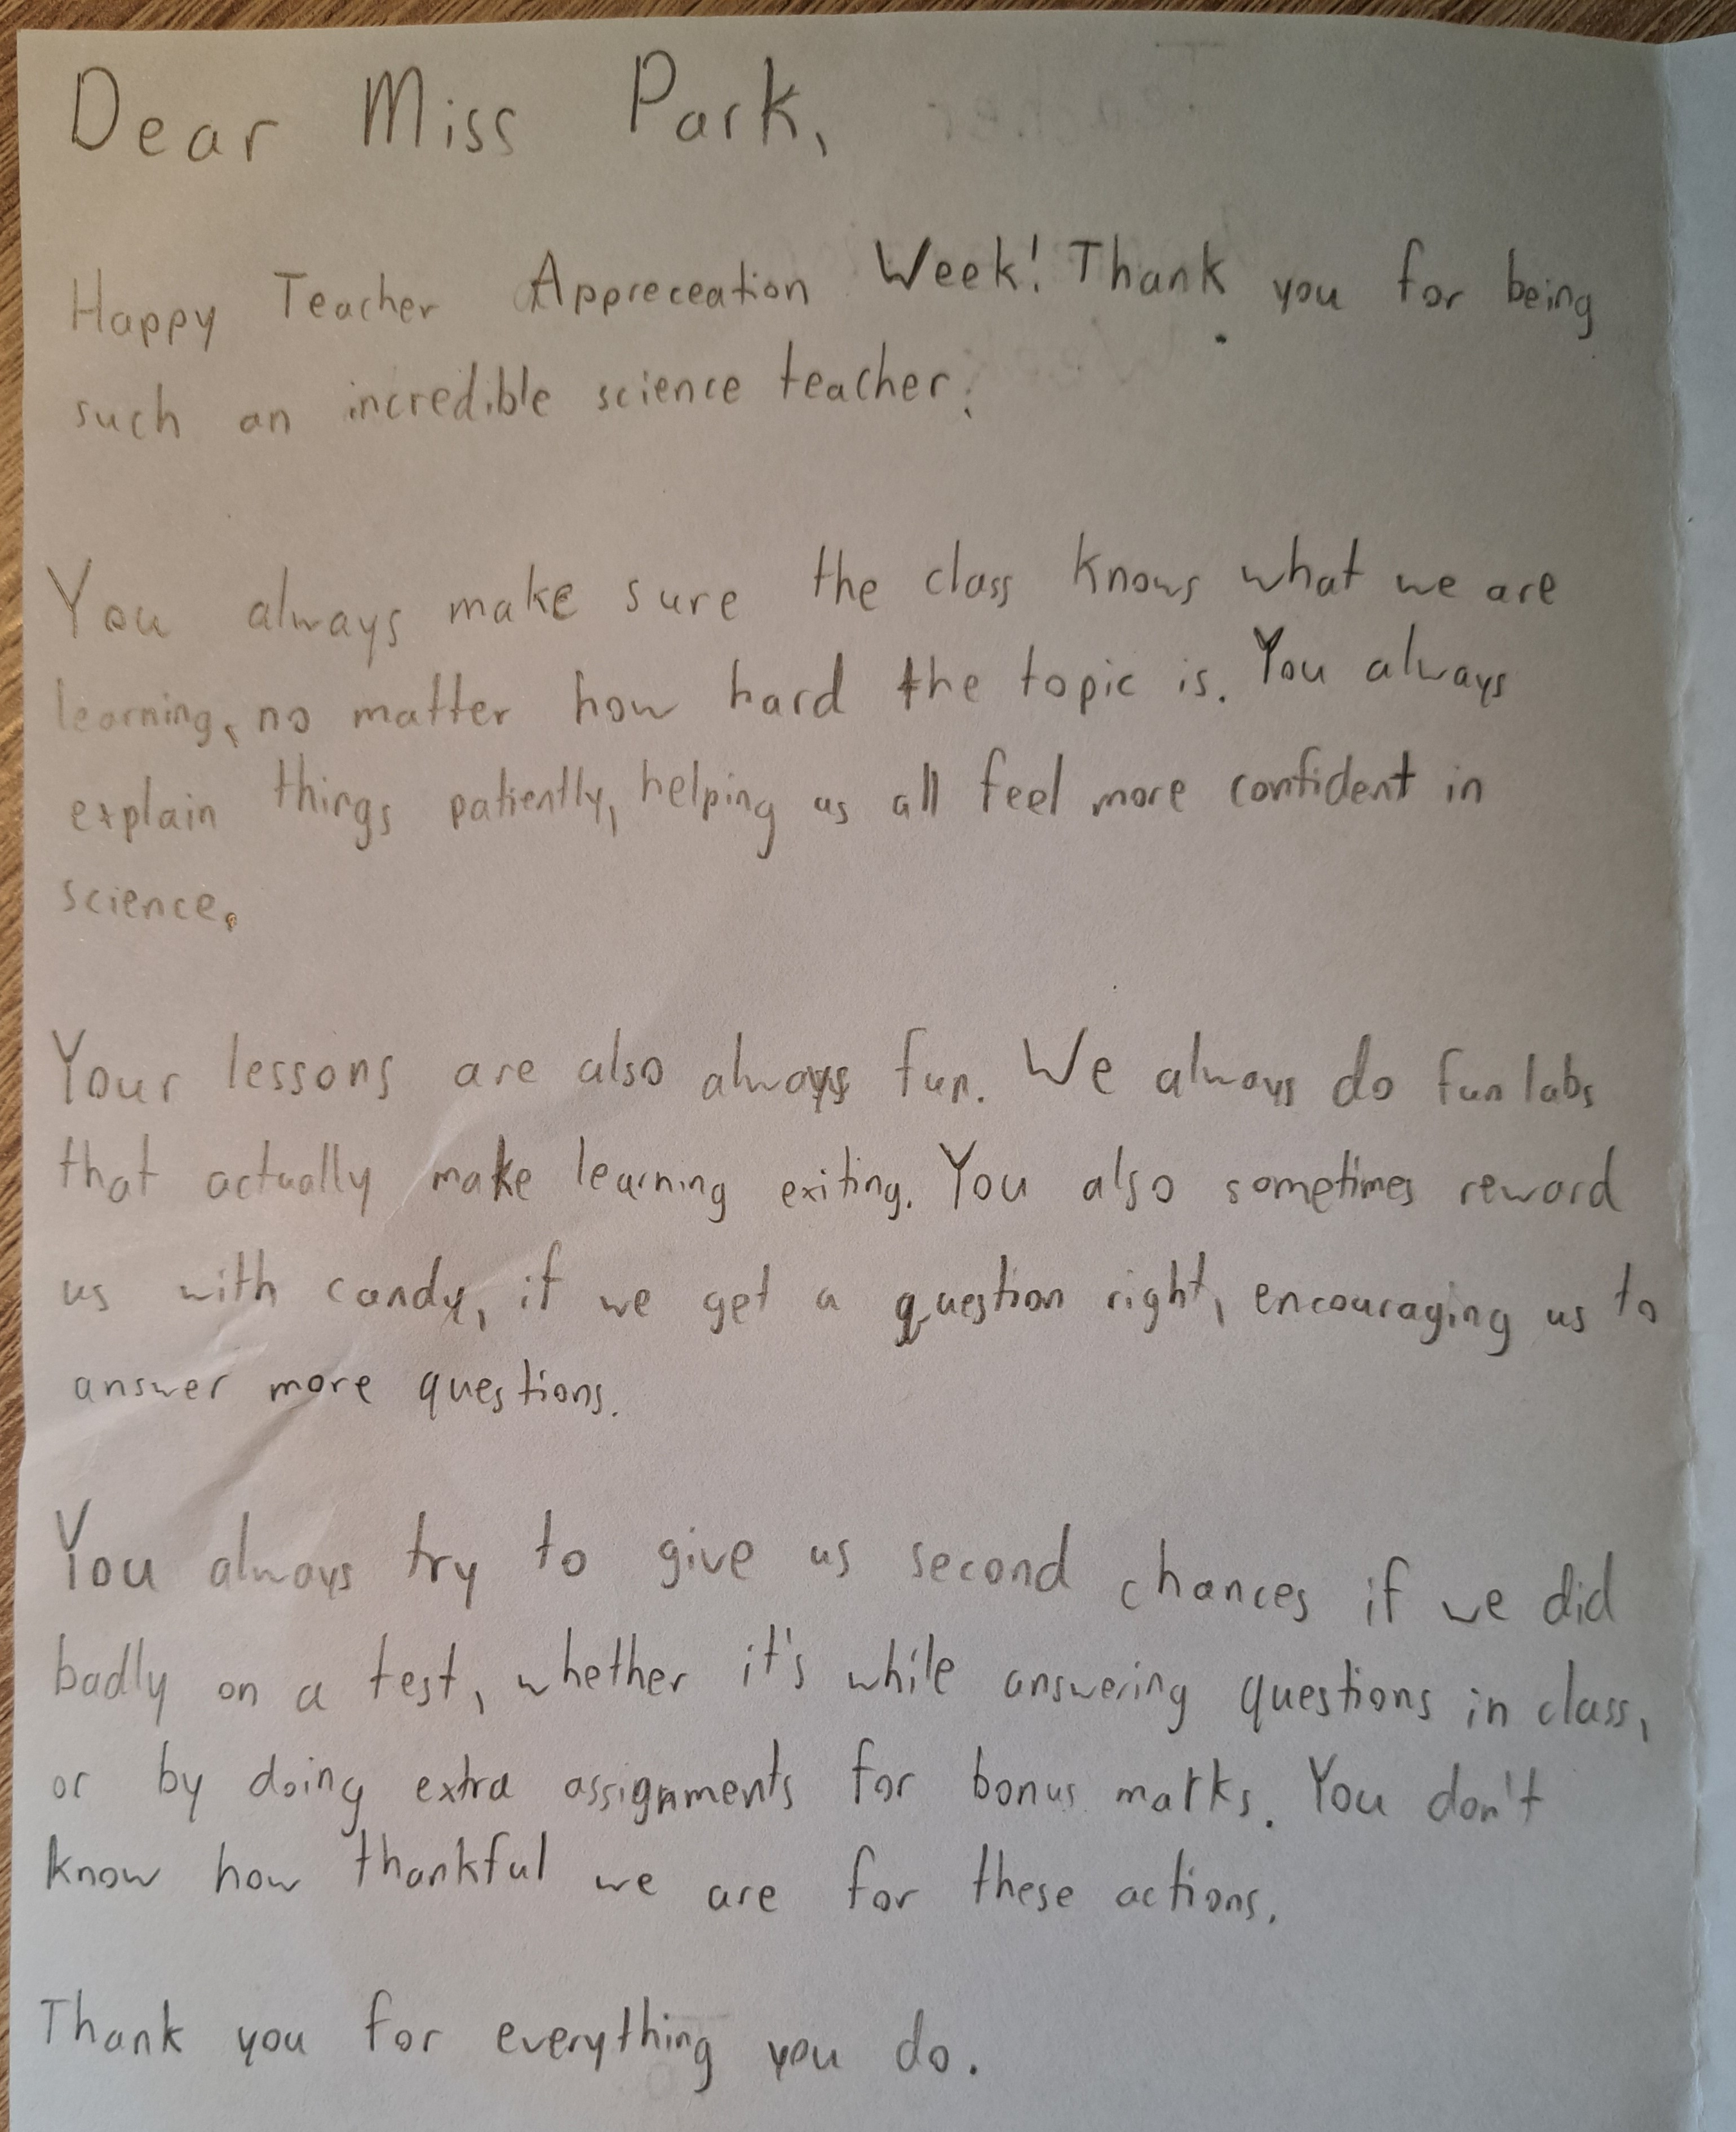 Dear Miss Park,
Happy Teacher Appreceation Week! Thank you for being
such an incredible science teacher.
You always make sure the class knows what we are
learning, no matter how hard the topic is. You always
explain things patiently, helping us all feel more confident in
science.
Your lessons are also always fun. We always do fun labs
that actually make learning exiting. You also sometimes reward
us with candy, if we get a question right, encouraging us to
answer more questions.
You always try to give us second chances if we did
badly on a test, whether it's while answering questions in class,
or by doing extra assignments for bonus marks. You don't
know how thankful we are for these actions.
Thank you for everything you do.